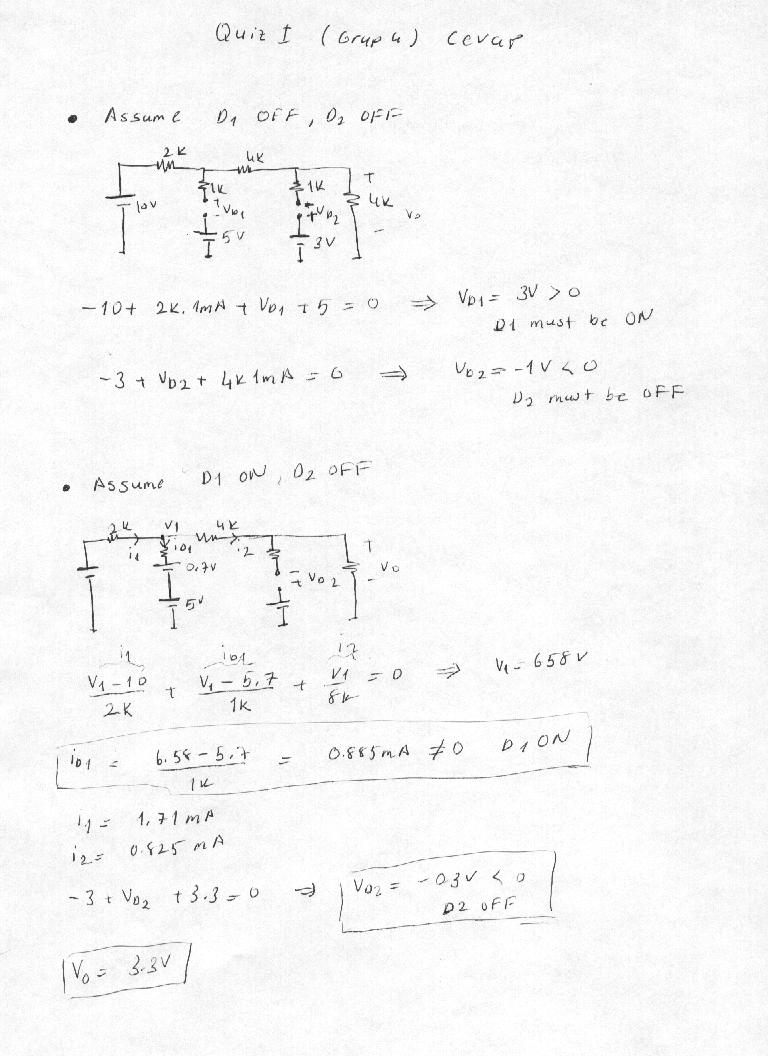 Quiz I (Grup 4) Cevap
• Assume D1 OFF, D2 OFF
2K 4K
10V 1K + VD1 - 5V 1K + VD2 3V + 4K - Vo
-10 + 2K.1mA + VD1 + 5 = 0 ⇒ VD1 = 3V > 0
D1 must be ON
-3 + VD2 + 4K 1mA = 0 ⇒ VD2 = -1V < 0
D2 must be OFF
• Assume D1 ON, D2 OFF
2K V1 4K
i1 iD1 i2 +
0.7V VD2 - Vo
5V
i1 iD1 i2
(V1 - 10)/2K + (V1 - 5.7)/1K + V1/8K = 0 ⇒ V1 = 6.58V
iD1 = (6.58 - 5.7)/1K = 0.885mA ≠ 0 D1 ON
i1 = 1.71mA
i2 = 0.825 mA
-3 + VD2 + 3.3 = 0 ⇒ VD2 = -0.3V < 0
D2 OFF
Vo = 3.3V